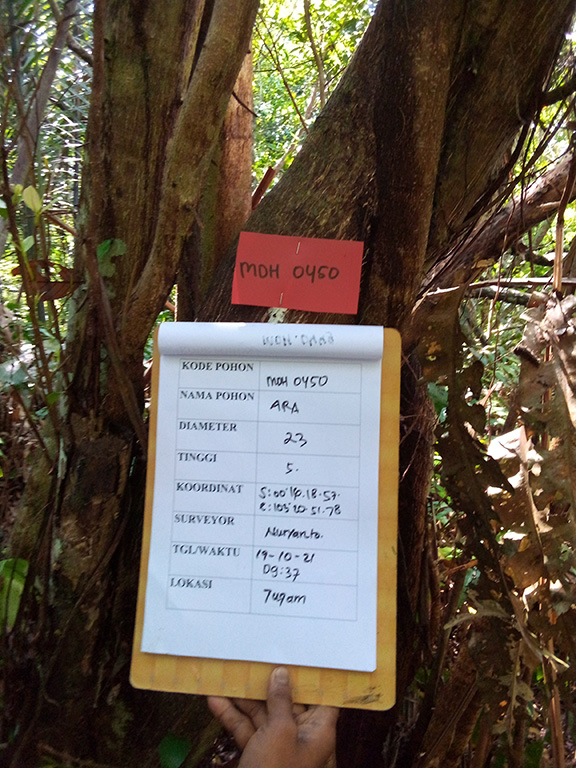 MDH 0450
KODE POHON MDH 0450
NAMA POHON ARA
DIAMETER 23
TINGGI 5.
KOORDINAT S:00'
E:105' 51.78
SURVEYOR Nuryanto.
TGL/WAKTU 19-10-21
09:37
LOKASI Tugam